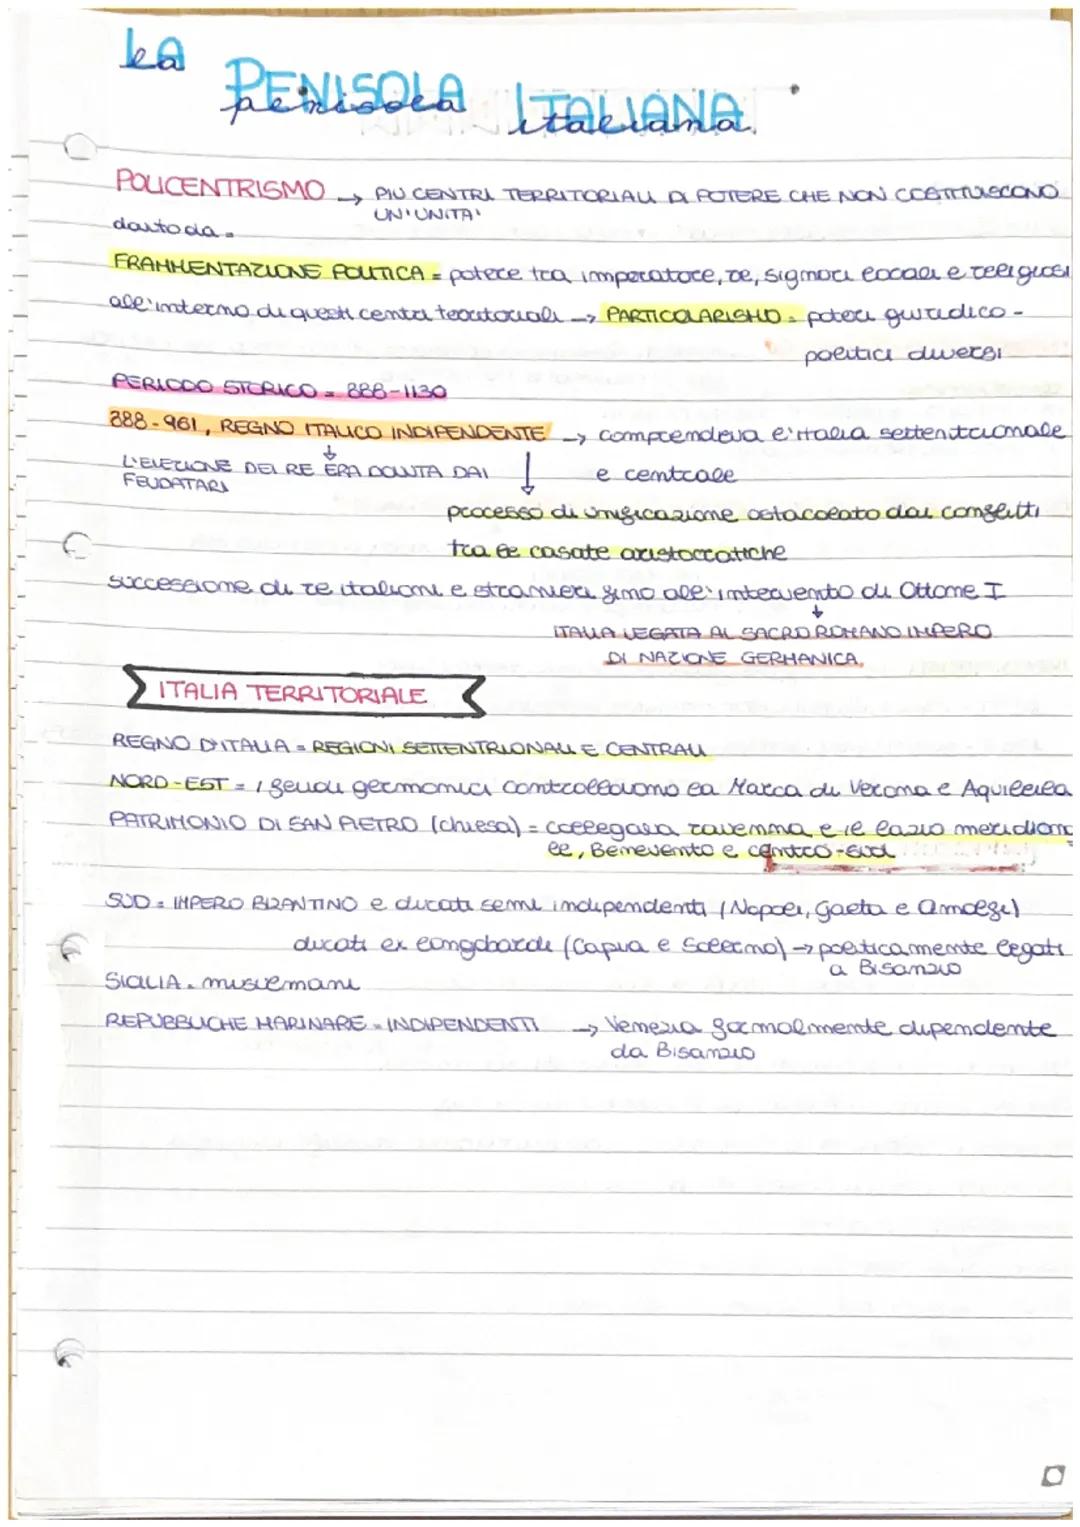 LA
PENISOLA ITALIANA
penisola italiana.
POLICENTRISMO → PIU CENTRI TERRITORIALI DI POTERE CHE NON COSTITUISCONO
UN'UNITA'
dato da =
FRAMMENTAZIONE POLITICA = potere tra imperatore, re, signori locali e religiosi
all'interno di questi centri territoriali → PARTICOLARISMO = poteri giuridico -
politici diversi
PERIODO STORICO = 888-1130
888-961, REGNO ITALICO INDIPENDENTE → comprendeva l'Italia settentrionale
e centrale
L'ELEZIONE DEI RE ERA DOVUTA DAI
FEUDATARI
processo di unificazione ostacolato dai conflitti
tra le casate aristocratiche
successione di re italiani e stranieri fino all'intervento di Ottone I
ITALIA LEGATA AL SACRO ROMANO IMPERO
DI NAZIONE GERMANICA.
ITALIA TERRITORIALE
REGNO D'ITALIA = REGIONI SETTENTRIONALI E CENTRALI
NORD-EST = i feudi germanici controllavano la Marca di Verona e Aquileia
PATRIMONIO DI SAN PIETRO (chiesa) = collegava ravenna e il lazio meridiona
le, Benevento e centro-sud
SUD = IMPERO BIZANTINO e ducati semi indipendenti (Napoli, Gaeta e Amalfi)
ducati ex longobardi (Capua e Salerno) → politicamente legati
a Bisanzio
SICILIA = musulmani
REPUBBLICHE MARINARE = INDIPENDENTI → Venezia formalmente dipendente
da Bisanzio